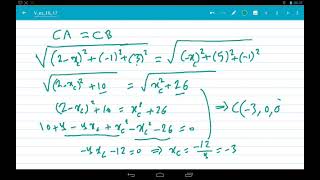 V_es_16_17
CA = CB
√((2-x_c)²+(-1)²+(3)²) = √((-x_c)²+(5)²+(-1)²)
√((2-x_c)²+10) = √(x_c²+26)
(2-x_c)²+10 = x_c²+26
10+4-4x_c+x_c²-x_c²-26=0
-4x_c-12=0 ⇒ x_c = -12/4 = -3
⇒ C(-3,0,0